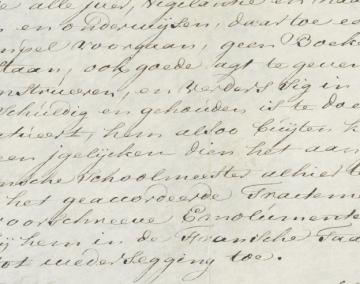 alle jver, vigilantie en
en onderwijsen, daar toe ee
mpel voorgaan, geen Boeke
staan, ook goede agt te geven
nstrueren, en verders sig in
schuldig en gehouden is te doe
atueert, hem alsoo buijten h
een jgelijcken dien het aan
nsche Schoolmeester alhier t
het geaccordeerde Tractem
voorschreeve Emolumente
ij hem in de Fransche Taa
tot wederseggin toe.